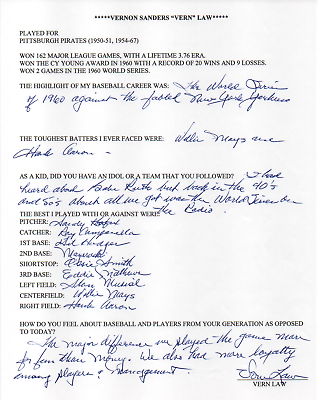 *****VERNON SANDERS "VERN" LAW*****
PLAYED FOR
PITTSBURGH PIRATES (1950-51, 1954-67)
WON 162 MAJOR LEAGUE GAMES, WITH A LIFETIME 3.76 ERA.
WON THE CY YOUNG AWARD IN 1960 WITH A RECORD OF 20 WINS AND 9 LOSSES.
WON 2 GAMES IN THE 1960 WORLD SERIES.
THE HIGHLIGHT OF MY BASEBALL CAREER WAS: The World Series
of 1960 against the fabled New York Yankees
THE TOUGHEST BATTERS I EVER FACED WERE: Willie Mays and
Hank Aaron.
AS A KID, DID YOU HAVE AN IDOL OR A TEAM THAT YOU FOLLOWED? I had
heard about Babe Ruth but back in the 40's
and 50's about all we got was the World Series on
the Radio.
THE BEST I PLAYED WITH OR AGAINST WERE:
PITCHER: Sandy Koufax
CATCHER: Roy Campanella
1ST BASE: Gil Hodges
2ND BASE: Mazeroski
SHORTSTOP: Ozzie Smith
3RD BASE: Eddie Mathews
LEFT FIELD: Stan Musial
CENTERFIELD: Willie Mays
RIGHT FIELD: Hank Aaron
HOW DO YOU FEEL ABOUT BASEBALL AND PLAYERS FROM YOUR GENERATION AS OPPOSED
TO TODAY? The major difference we played the game more
for fun than money. We also had more loyalty
among players & management.
Vern Law
VERN LAW